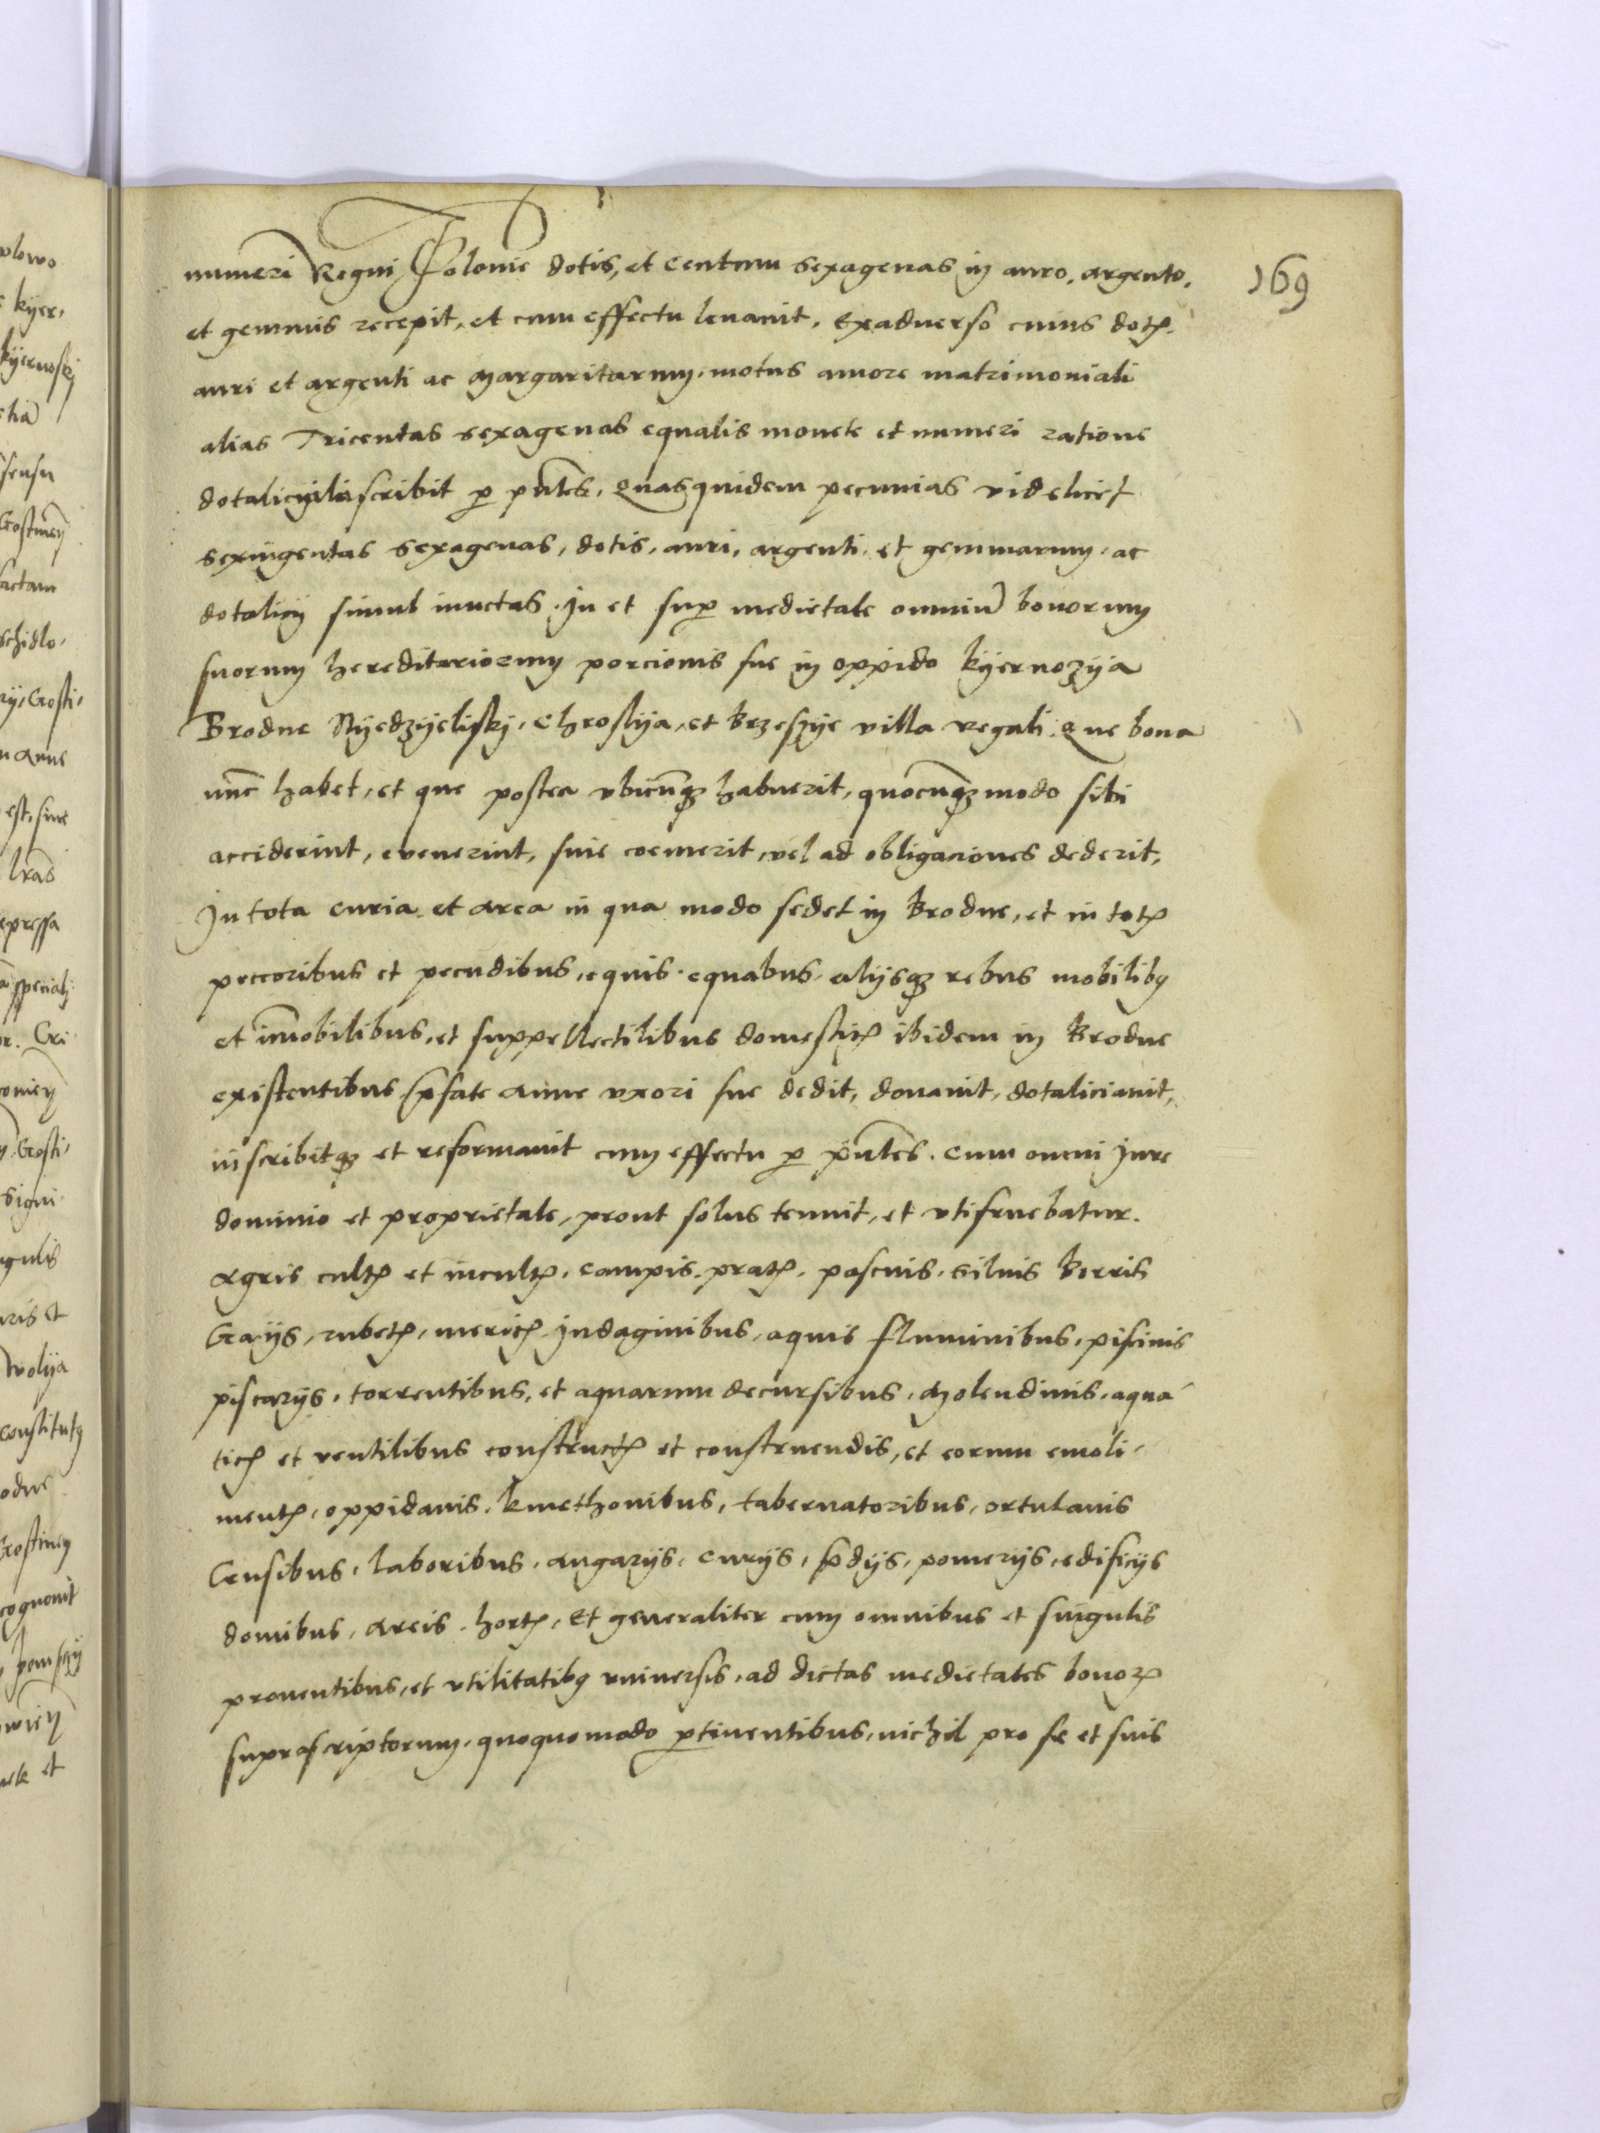 numeri Regni Polonie dotis, et centum sexagenas in auro, argento,
169
et gemmis recepit, et cum effectu levavit, Exadverso cuius dotis
auri et argenti ac Margaritarum, motus amore matrimoniali
alias Tricentas sexagenas equalis monete et numeri ratione
dotalicii inscribit per pñtes, Quasquidem pecunias videlicet
sexingentas sexagenas, dotis, auri, argenti et gemmarum, ac
dotalicij simul iunctas, In et super medietate omniũ bonorum
suorum hereditariorum porcionis sue in oppido Kyernozya
Brodne Nyedzyelisky, Chroslya, et Brzeszye villa regali, Que bona
nũc habet, et que postea ubicũq; habuerit, quocũq; modo sibi
acciderint, evenerint, sive coemerit, vel ad obligaciones dederit,
In tota curia et area in qua modo sedet in Brodne, et in totis
peccoribus et pecudibus, equis, equabus, alijsq; rebus mobilibus
et im̃obilibus, et suppellectilibus domesticis ibidem in Brodne
existentibus prefate Anne uxori sue dedit, donavit, dotaliciavit,
inscribitq; et reformavit cum effectu per pñtes, Cum omni Iure
dominio et proprietate, prout solus tenuit, et utifruebatur.
Agris cultis et incultis, campis, pratis, pascuis, Silvis Borris
Gayis, rubetis, mericis, Indaginibus, aquis fluminibus, piscinis
piscarijs, torrentibus, et aquarum decursibus, Molendinis, aqua-
ticis et ventilibus constructis et construendis, et eorum emoli-
mentis, oppidanis, kmethonibus, tabernatoribus, ortulanis
Censibus, laboribus, angarijs, curijs, predijs, pomerijs, edificijs
domibus, areis, hortis, Et generaliter cum omnibus et singulis
proventibus, et utilitatibus universis, ad dictas medietates bonorum
suprascriptorum, quoquomodo pertinentibus, nichil pro se et suis